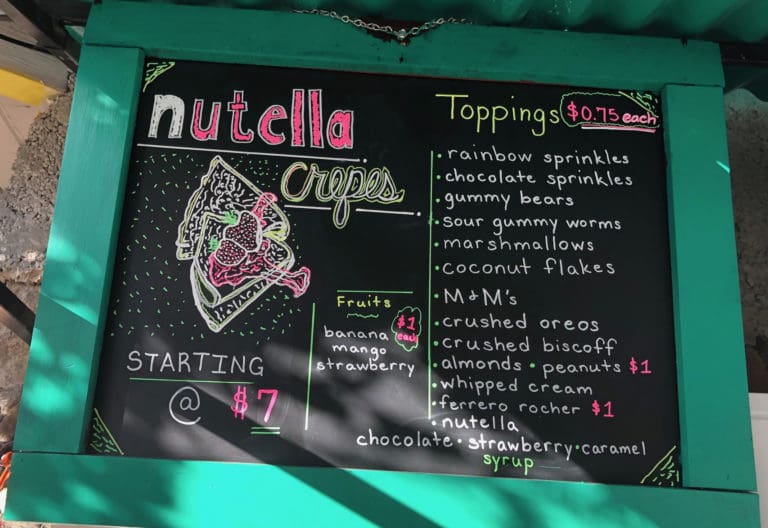 nutella
crepes
STARTING
@ $7
Fruits
$1 each
banana
mango
strawberry
Toppings $0.75 each
• rainbow sprinkles
• chocolate sprinkles
• gummy bears
• sour gummy worms
• marshmallows
• coconut flakes
• M&M's
• crushed oreos
• crushed biscoff
• almonds • peanuts $1
• whipped cream
• ferrero rocher $1
• nutella
chocolate • strawberry • caramel
syrup